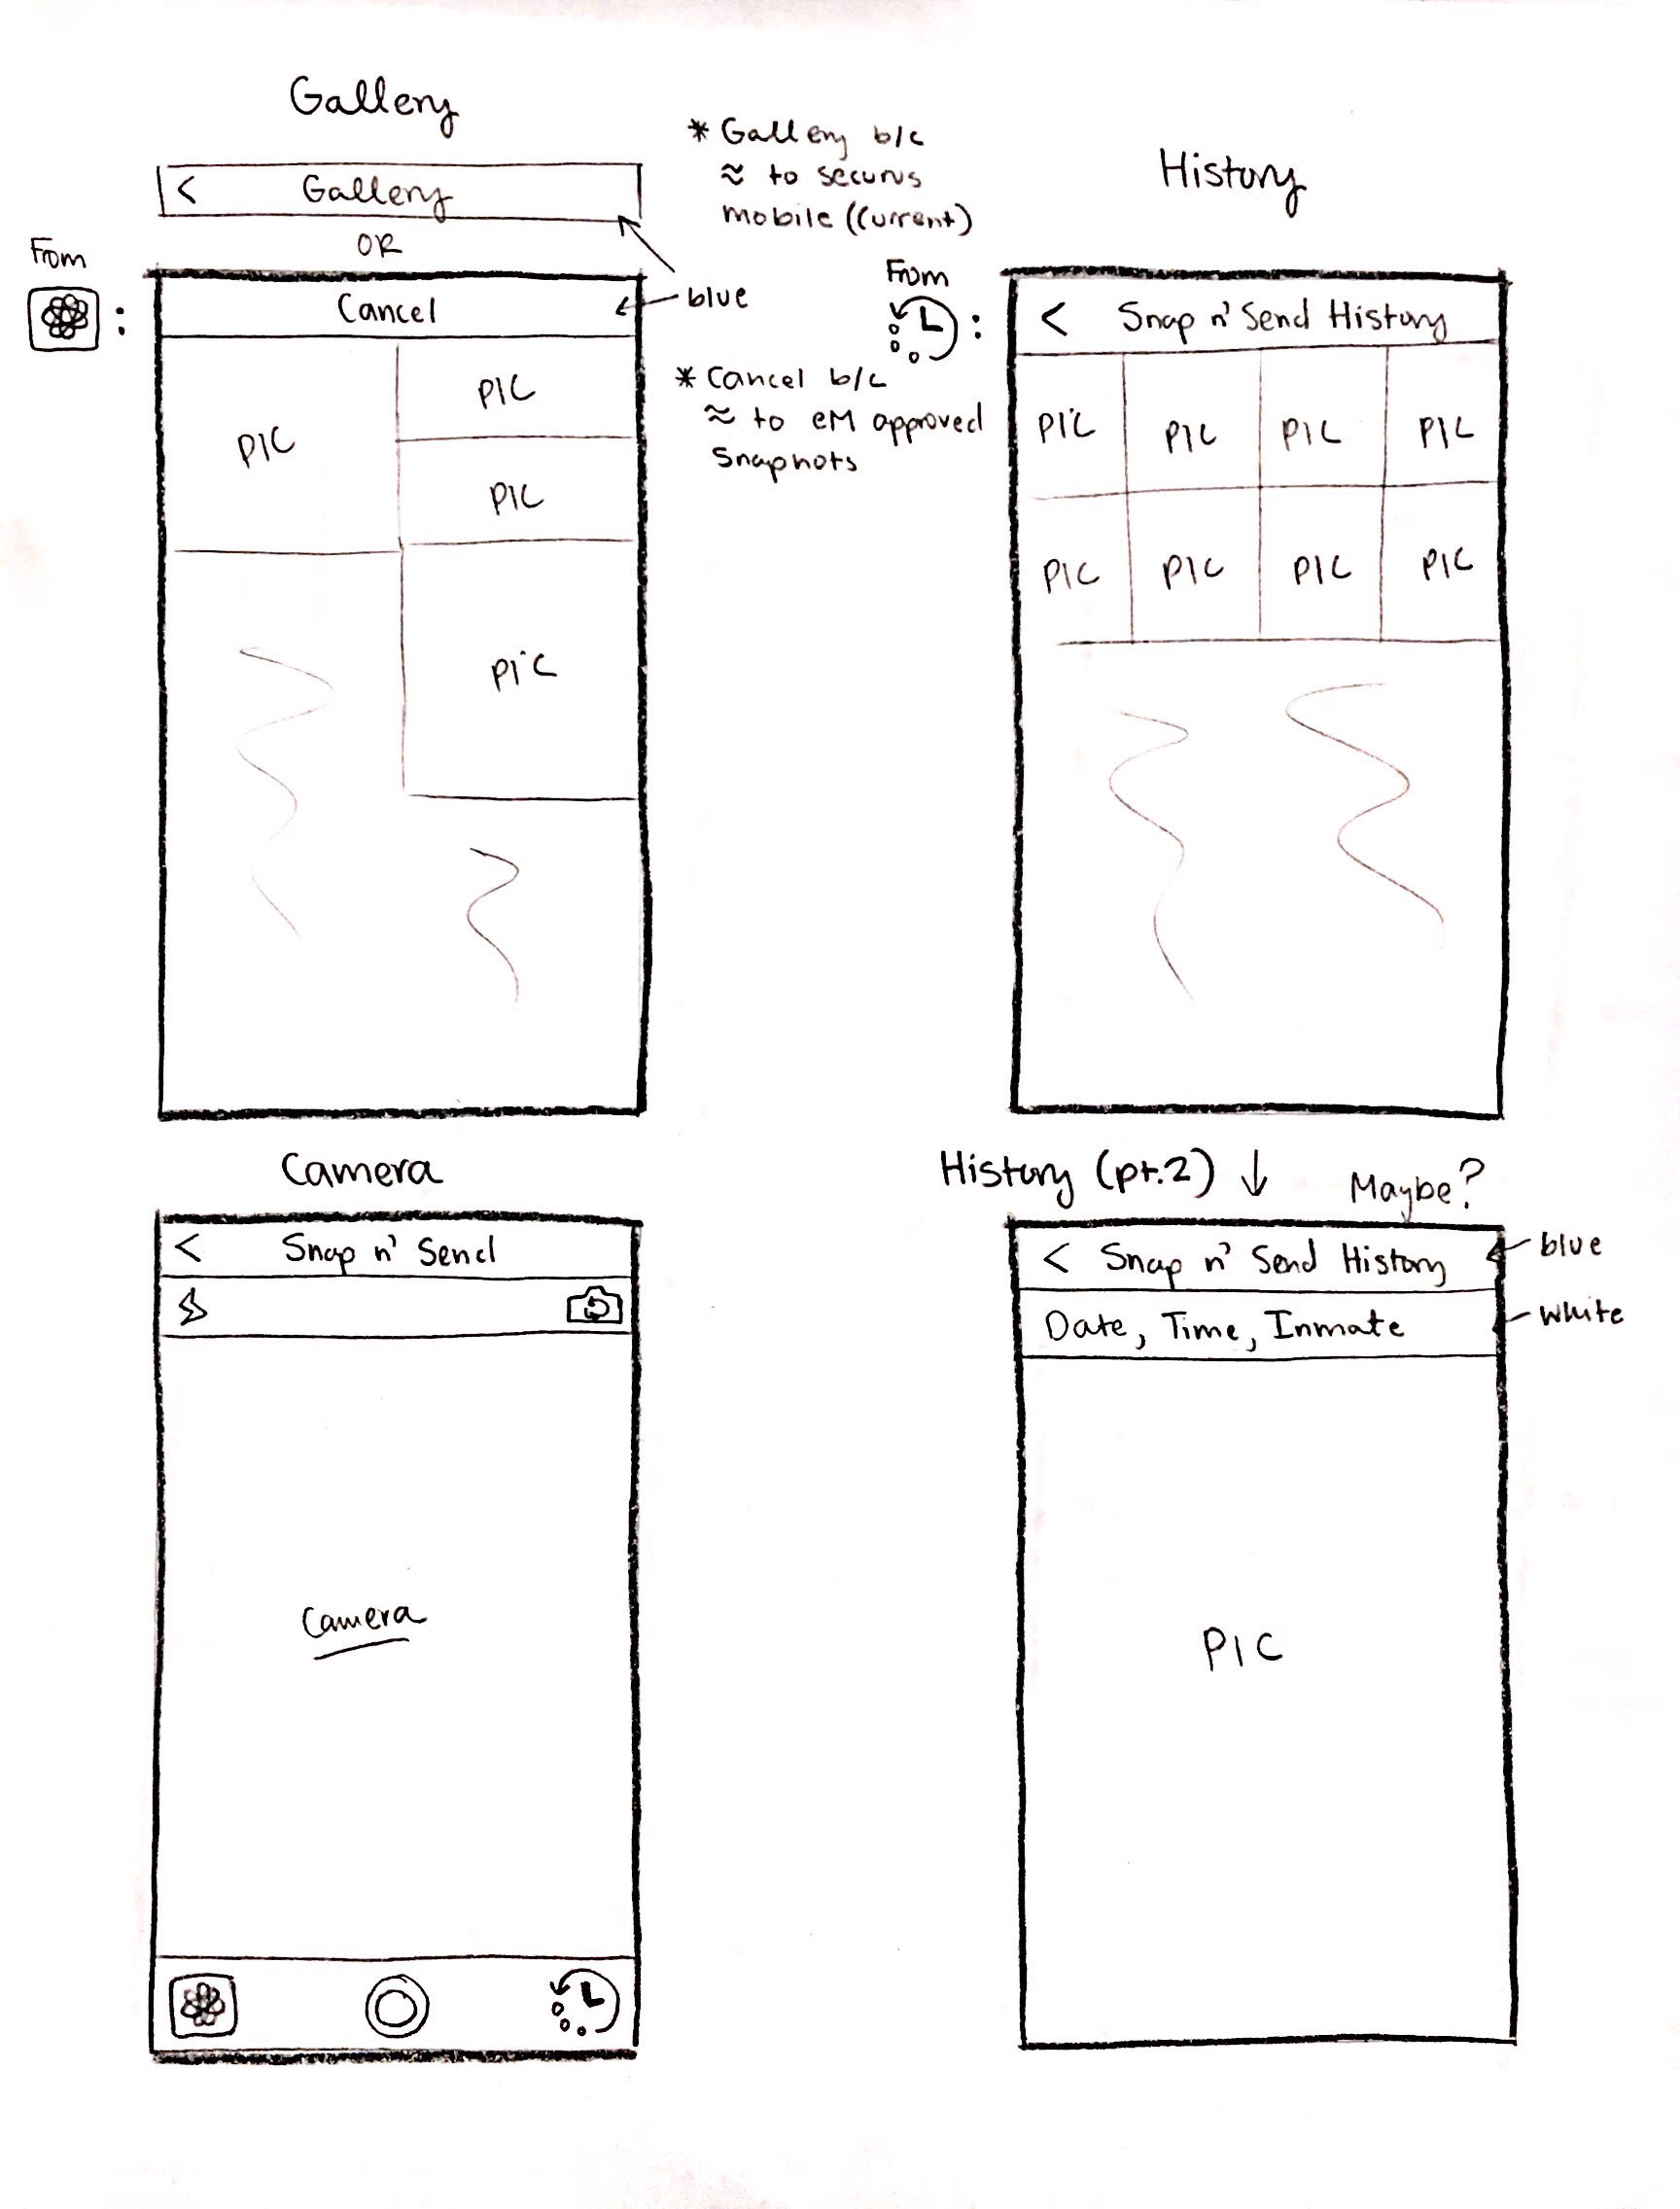 Gallery
< Gallery
OR
From
:
Cancel
blue
PIC
PIC
PIC
PIC
* Gallery b/c
≈ to securus
mobile (current)
* Cancel b/c
≈ to eM approved
Snaphots
History
From
:
< Snap n' Send History
PIC PIC PIC PIC
PIC PIC PIC PIC
Camera
< Snap n' Send
Camera
History (pt.2) ↓ Maybe?
< Snap n' Send History
blue
Date, Time, Inmate
white
PIC